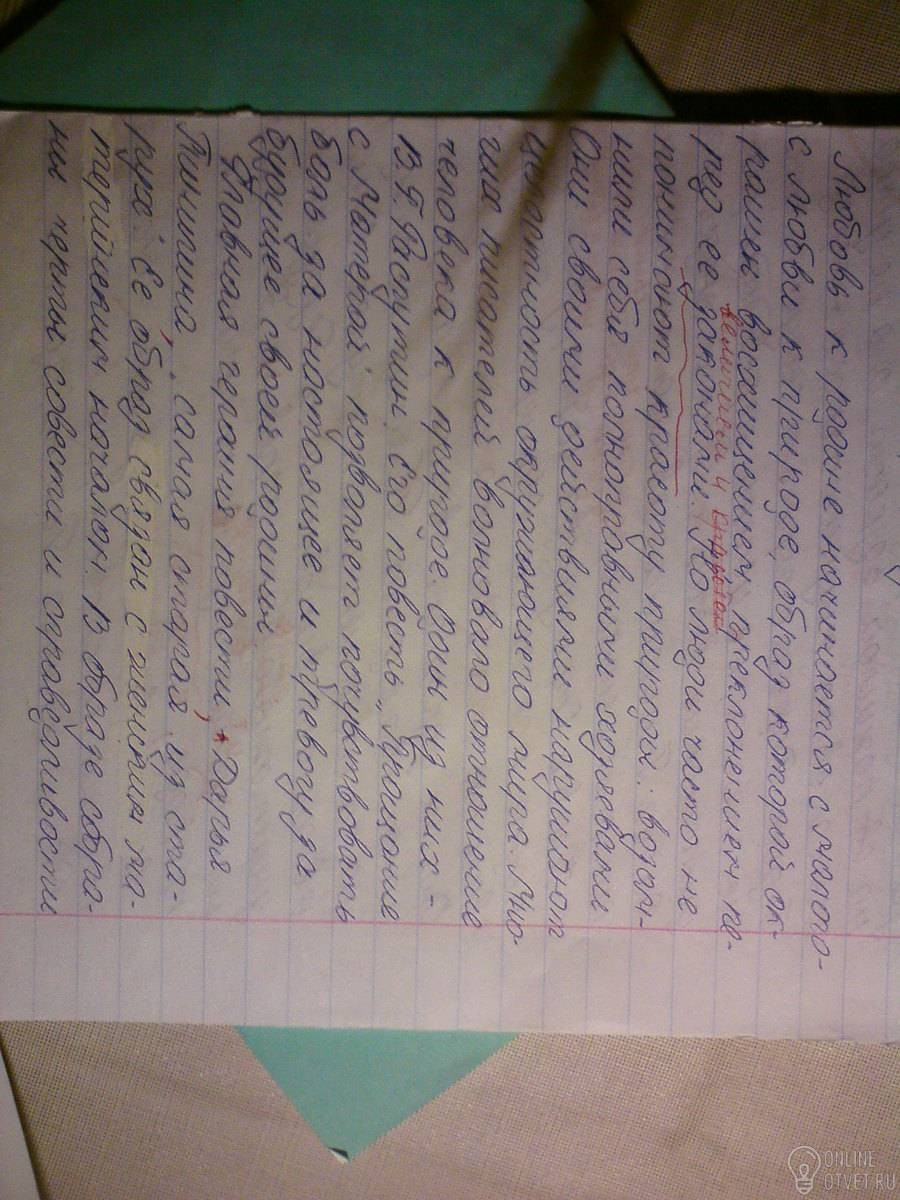 Любовь к родине начинается с малого-
с любви к природе, образ которой ок-
рашен восхищением преклонением пе-
величием и
ред ее законами. Но люди часто не
понимают красоту природы: возом-
нили себя полноправными хозяевами
Они своими действиями нарушают
целостность окружающего мира. Мно-
гих писателей волновало отношение
человека к природе. Один из них -
В.Г. Распутин. Его повесть „Прощание
с Матерой" позволяет почувствовать
боль за настоящее и тревогу за
будущее своей родины.
Главная героиня повести, Дарья
Пинигина, „самая старая из ста-
рух". Ее образ связан с жоннотия ма-
теринским началом. В образе собра-
ны черты совести и справедливости
ONLINE
OTVET.RU